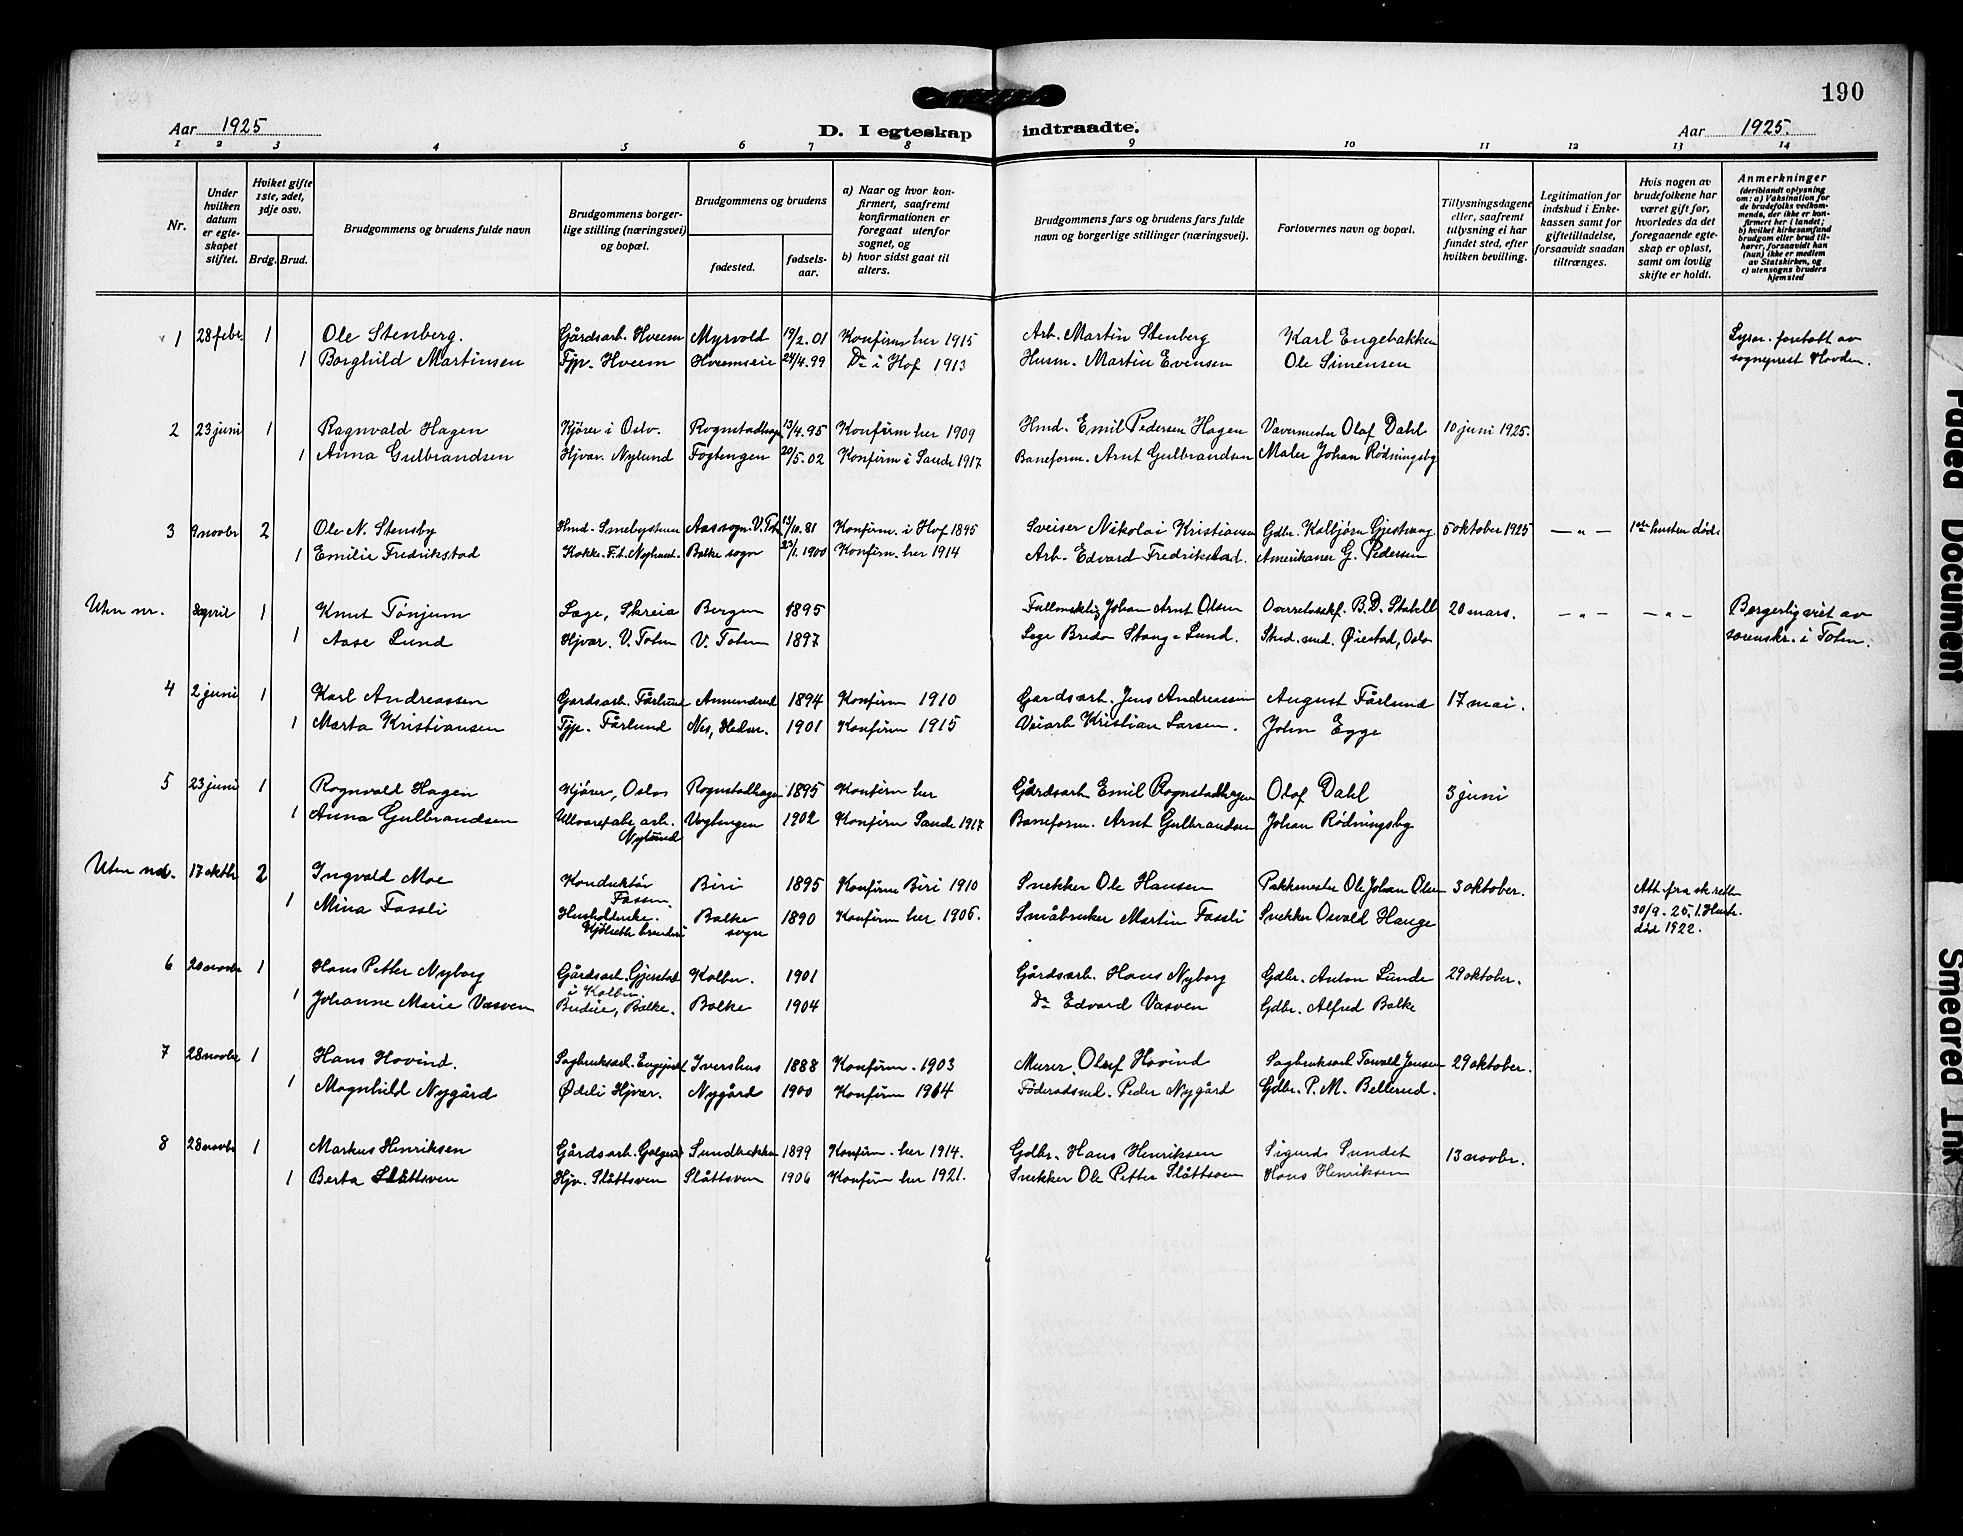 190
Aar 1925 D. I egteskap indtraadte. Aar 1925.
1 2 3 4 5 6 7 8 9 10 11 12 13 14
Nr.
Under hvilken datum er egteskapet stiftet.
Hviket gifte 1ste, 2det, 3dje osv.
Brdg. Brud.
Brudgommens og brudens fulde navn
Brudgommens borgerlige stilling (næringsvei) og bopæl.
Brudgommens og brudens
fødested. fødselsaar.
a) Naar og hvor konfirmert, saafremt konfirmationen er foregaat utenfor sognet, og
b) hvor sidst gaat til alters.
Brudgommens fars og brudens fars fulde navn og borgerlige stillinger (næringsvei).
Forlovernes navn og bopæl.
Tillysningsdagene eller, saafremt tillysning ei har fundet sted, efter hvilken bevilling.
Legitimation for indskud i Enkekassen samt for giftetilladelse, forsaavidt saadan tiltrænges.
Hvis nogen av brudefolkene har været gift før, hvorledes da det foregaaende egteskap er opløst, samt om lovlig skifte er holdt.
Anmerkninger
(deriblandt oplysning om: a) Vaksination for de brudefolks vedkommende, der ikke er konfirmert her i landet; b) hvilket kirkesamfund brudgom eller brud tilhører, forsaavidt han (hun) ikke er medlem av Statskirken, og c) utensogns bruders hjemsted
1 28 febr. 1 Ole Stenberg. Gårdsarb. Hveem Myrvold 19/2.01 Konfirm her 1915 Arb. Martin Stenberg Karl Engebakken Lysn. foretatt av
1 Borghild Martinsen Tjp. Hveem Hveemseie 24/4.99 Do i Hof 1913 Husm. Martin Evensen Ole Simensen sogneprest Hovden.
2 23 juni 1 Ragnvald Hagen Kjörer i Oslo. Rognstadhagen 13/4.95 Konfirm her 1909 Hmd. Emil Pedersen Hagen Vævermester Olaf Dahl 10 juni 1925.
1 Anna Gulbrandsen Hjvær. Nylund Fogtengen 20/5.02 Konfirm i Sande 1917 Baneform. Arnt Gulbrandsen Maler Johan Rödningsby
3 9 novbr 2 Ole N. Stensby Hmd. Smebystuen Aas sogn. V. Toten 13/10.81 Konfirm. i Hof 1895 Sveiser Nikolai Kristiansen Gdbr. Kolbjörn Gjestvang 5 oktober 1925 — " — 1ste hustru död.
1 Emilie Fredrikstad Kokke. Balke sogn 23/1.1900 Konfirm. her 1914 Arb. Edvard Fredrikstad. Amerikaner G. Pedersen
Uten nr. 8 april 1 Knut Tönjum Læge, Skreia Bergen 1895 Johan Arnt Olsen B.D. Stabell 20 mars. — " — — " — Borgerlig viet av
1 Aase Lund Hjvær. V. Toten V. Toten 1897 Læge Bredo Stange Lund. Stud. med. Øiestad, Oslo sorenskr. i Toten.
4 2 juni 1 Karl Andreassen Gardsarb. Fårlund Amundrud 1894 Konfirm 1910 Gardsarb. Jens Andreassen August Fårlund 17 mai.
1 Marta Kristiansen Tjp. Fårlund Nes, Hedm. 1901 Konfirm 1915 Veiarb Kristian Larsen. John Egge
5 23 juni 1 Rognvald Hagen Kjörer, Oslo Rognstadhagen 1895 Konfirm her Gårdsarb Emil Rognstadhagen Olaf Dahl 3 juni
1 Anna Gulbrandsen Ullvarefabr. arb. Nylund Vogtengen 1902 Konfirm Sande 1917 Baneform. Arnt Gulbrandsen Johan Rödningsby
Uten nd. 17 oktbr 2 Ingvald Moe Konduktör Biri 1895 Konfirm Biri 1910 Snekker Ole Hansen Pakkmester Ole Johan Olsen 3 oktober. Att. fra sk. retten
1 Mina Fossli Husholderske. Balke sogn 1890 Konfirm her 1906. Småbruker Martin Fossli Snekker Osvald Hauge 30/9-25. 1. Hustr. död 1922.
6 20 novbr 1 Hans Petter Nyborg Gårdsarb. Gjerstad i Kolbu. Kolbu. 1901 Gårdsarb. Hans Nyborg Gdbr. Anton Lunde 29 oktober.
1 Johanne Marie Vasven Budeie, Balke. Balke 1904 Do Edvard Vasven Gdbr. Alfred Balke
7 28 novbr 1 Hans Hovind. Sagbruksarb. Ivershus 1888 Konfirm. 1903 Murer. Oluf Hovind Sagbruksarb Torvald Jensen 29 oktober.
1 Magnhild Nygård Ødeli Hjvær. Nygård 1900 Konfirm 1914 Föderådsmd. Peder Nygård Gdbr. P. M. Bellerud.
8 28 novbr 1 Markus Henriksen Gårdsarb. Sundbakken 1899 Konfirm. her 1914. Gdbr. Hans Henriksen Sigurd Sundet 13 novbr.
1 Berta Slåttsven Hjv. Slåttsven Slåttsven 1906 Konfirm her 1921. Snekker Ole Petter Slåttsven Hans Henriksen
Faded Document
Smeared Ink